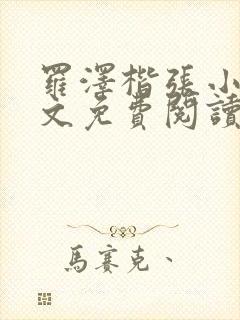 羅澤楷張小
文免費閱讀
馬賽克、